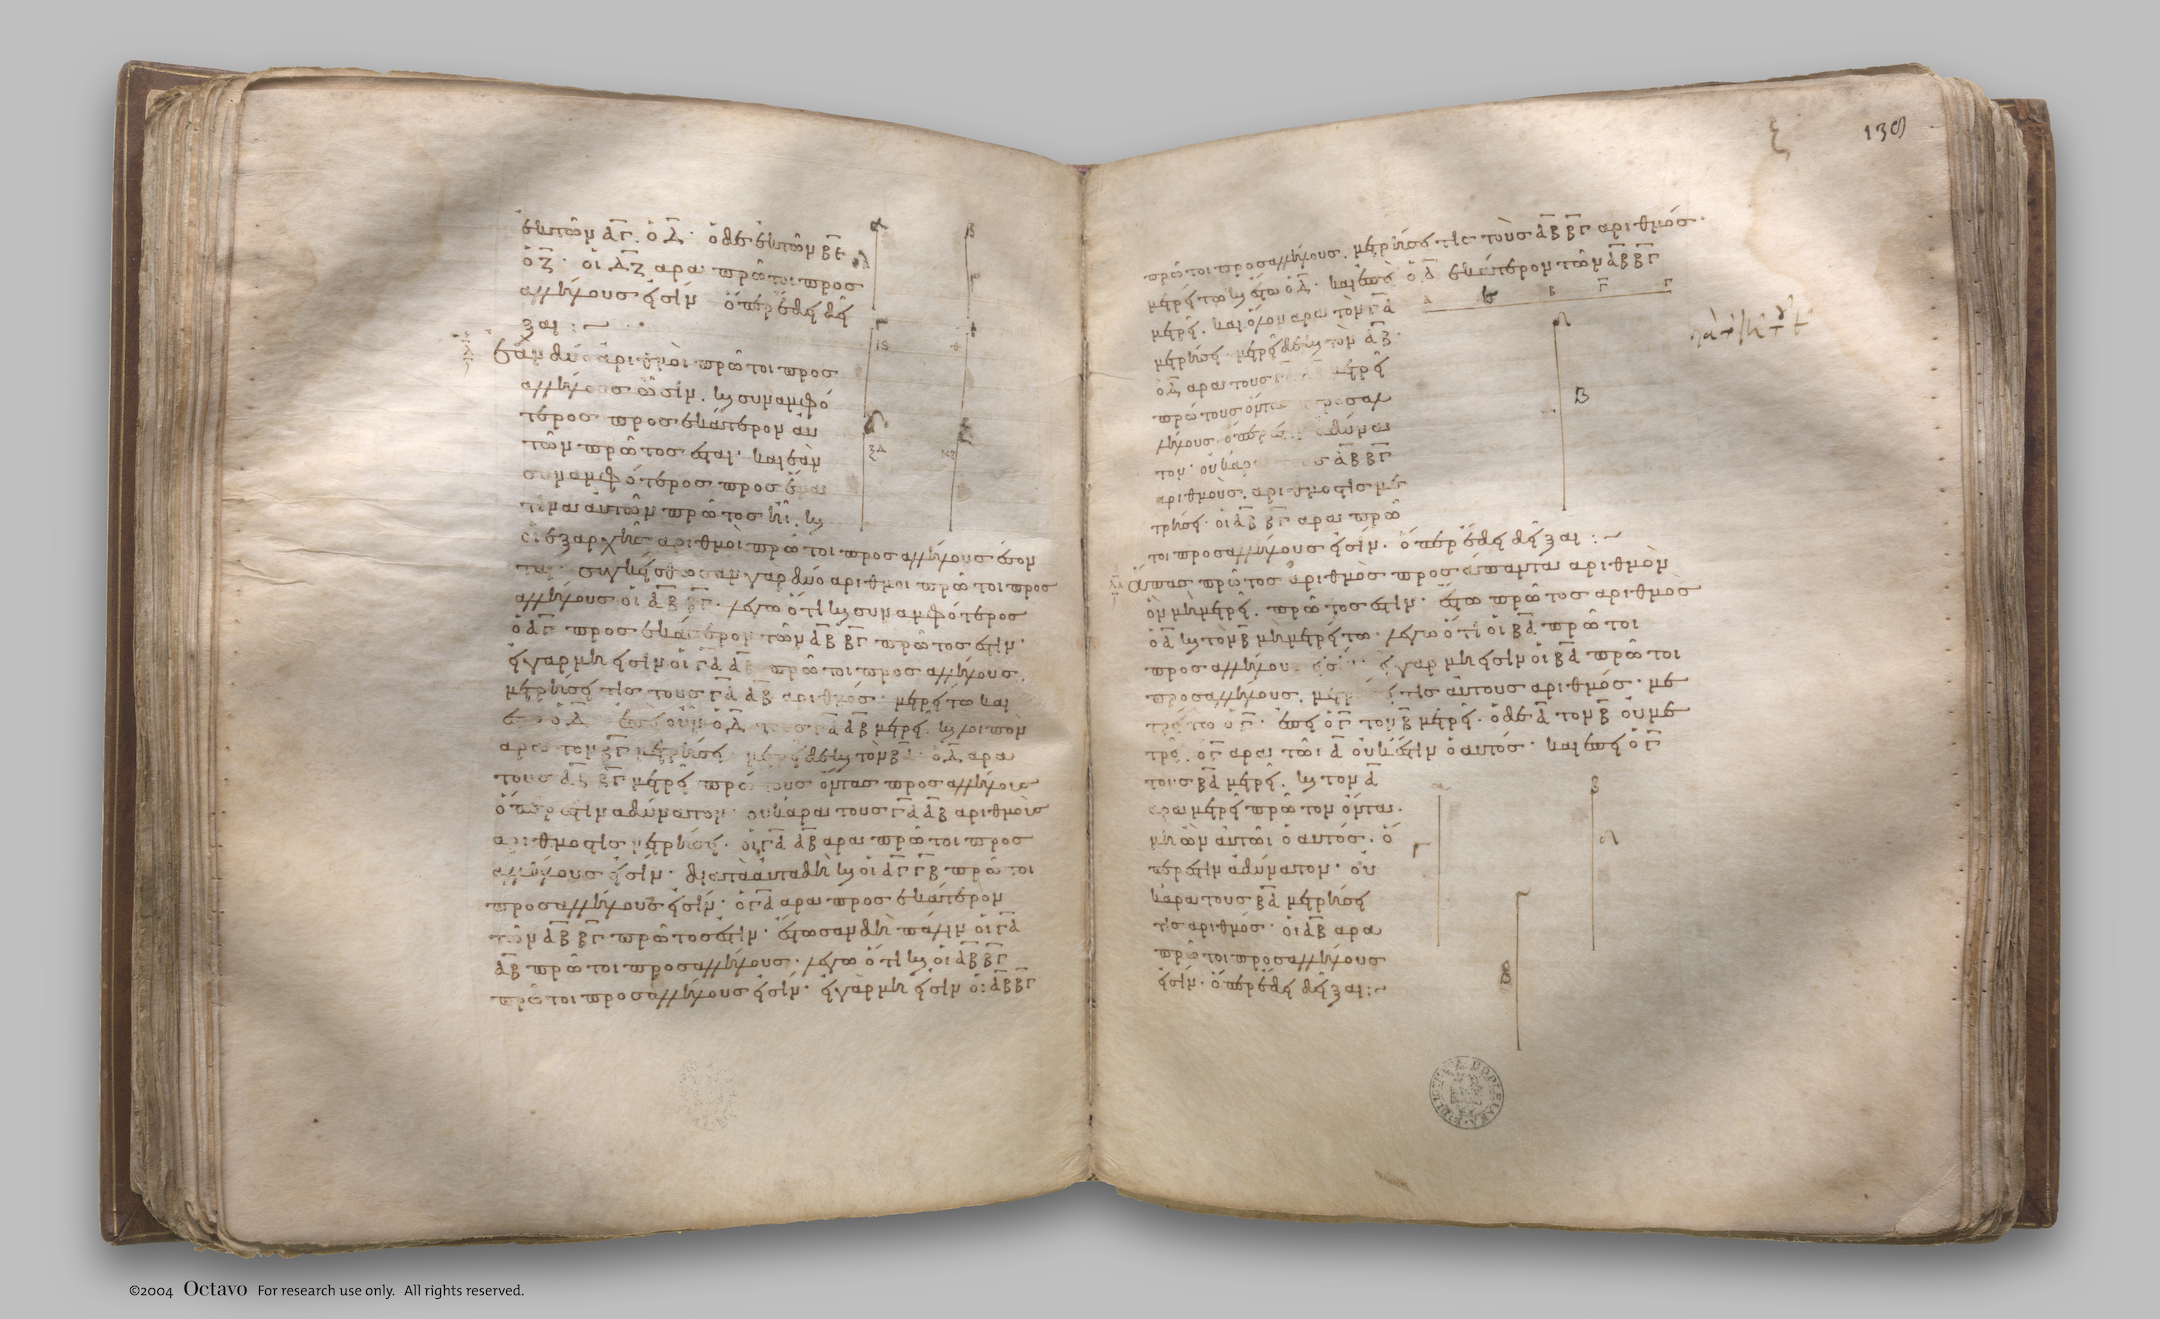 ἐκ τῶν ΑΓ ὁ Δ· ὁ δὲ ἐκ τῶν ΒΕ
ὁ Ζ· οἱ ΔΖ ἄρα πρῶτοι πρὸς
ἀλλήλους εἰσίν ὅπερ ἔδει δεῖ
ξαι :~
Ἐὰν δύο ἀριθμοὶ πρῶτοι πρὸς
ἀλλήλους ὦσιν, καὶ συναμφό
τερος πρὸς ἑκάτερον αὐ
τῶν πρῶτος ἔσται· καὶ ἐὰν
συναμφότερος πρὸς ἕνα
τινα αὐτῶν πρῶτος ἦι, καὶ
οἱ ἐξαρχῆς ἀριθμοὶ πρῶτοι πρὸς ἀλλήλους ἔσον
ται συγκείσθωσαν γὰρ δύο ἀριθμοι πρῶτοι πρὸς
ἀλλήλους οἱ ΑΒ ΒΓ· λέγω ὅτι καὶ συναμφότερος
ὁ ΑΓ πρὸς ἑκάτερον τῶν ΑΒ ΒΓ πρῶτος ἐστίν·
εἰ γαρ μή εἰσιν οἱ ΓΑ ΑΒ πρῶτοι πρὸς ἀλλήλους,
μετρήσει τίς τοὺς ΓΑ ΑΒ ἀριθμός· μετρείτω καὶ
ἔστω ὁ Δ ἐπεὶ οὖν ὁ Δ τοὺς ΓΑ ΑΒ μετρεῖ, καὶ λοιπὸν
ἄρα τὸν ΒΓ μετρήσει μετρεῖ δὲ καὶ τὸν ΒΑ· ὁ Δ ἄρα
τοὺς ΑΒ ΒΓ μετρεῖ πρώτους ὄντας πρὸς ἀλλήλους
ὅπερ ἐστὶν ἀδύνατον· οὐκ ἄρα τοὺς ΓΑ ΑΒ ἀριθμοὺς
ἀριθμός τις μετρήσει. οἱ ΓΑ ΑΒ ἄρα πρῶτοι πρὸς
ἀλλήλους εἰσίν· διὰ τὰ αὐτὰ δὴ καὶ οἱ ΑΓ ΓΒ πρῶτοι
πρὸς ἀλλήλους εἰσίν· ὁ ΓΑ ἄρα πρὸς ἑκάτερον
τῶν ΑΒ ΒΓ πρῶτος ἐστίν· ἔστωσαν δὴ πάλιν οἱ ΓΑ
ΑΒ πρῶτοι πρὸς ἀλλήλους· λέγω ὅτι καὶ οἱ ΑΒ ΒΓ
πρῶτοι πρὸς ἀλλήλους εἰσίν· εἰ γὰρ μή εἰσιν οἱ ΑΒ ΒΓ
138
πρῶτοι πρὸς ἀλλήλους, μετρήσει τὶς τοὺς ΑΒ ΒΓ ἀριθμός·
μετρείτω καὶ ἔστω ὁ Δ· καὶ ἐπεὶ ὁ Δ ἑκάτερον τῶν ΑΒ ΒΓ
Α Β Γ
μετρεῖ, καὶ ὅλον ἄρα τὸν ΓΑ
μετρήσει· μετρεῖ δὲ καὶ τὸν ΑΒ·
ὁ Δ ἄρα τοὺς ΓΑ ΑΒ μετρεῖ
πρώτους ὄντας πρὸς ἀλ
λήλους ὅπερ ἐστὶν ἀδύνα
τον· οὐκ ἄρα τοὺς ΑΒ ΒΓ
ἀριθμοὺς, ἀριθμός τις με
τρήσει· οἱ ΑΒ ΒΓ ἄρα πρῶ
τοι πρὸς ἀλλήλους εἰσίν· ὅπερ ἔδει δεῖξαι :~
Ἅπας πρῶτος ἀριθμὸς πρὸς ἅπαντα ἀριθμὸν
ὃν μὴ μετρεῖ, πρῶτος ἐστίν· ἔστω πρῶτος ἀριθμὸς
ὁ Α καὶ τὸν Β μὴ μετρείτω· λέγω ὅτι οἱ ΒΑ πρῶτοι
πρὸς ἀλλήλους εἰσίν· εἰ γαρ μή εἰσιν οἱ ΒΑ πρῶτοι
πρὸς ἀλλήλους, μετρήσει τὶς αὐτοὺς ἀριθμός· με
τρείτω ὁ Γ· ἐπεὶ ὁ Γ τὸν Β μετρεῖ· ὁ δὲ Α τὸν Β οὐ με
τρεῖ, ὁ Γ ἄρα τῶι Α οὐκ ἐστὶν ὁ αὐτός· καὶ ἐπεὶ ὁ Γ
τοὺς ΒΑ μετρεῖ, καὶ τὸν Α
ἄρα μετρεῖ πρῶτον ὄντα.
μὴ ὢν αὐτῶι ὁ αὐτός, ὅ
περ ἐστὶν ἀδύνατον· οὐ
κ ἄρα τοὺς ΒΑ μετρήσει
τὶς ἀριθμός· οἱ ΑΒ ἄρα
πρῶτοι πρὸς ἀλλήλους
εἰσίν· ὅπερ ἔδει δεῖξαι :~
©2004 Octavo For research use only. All rights reserved.